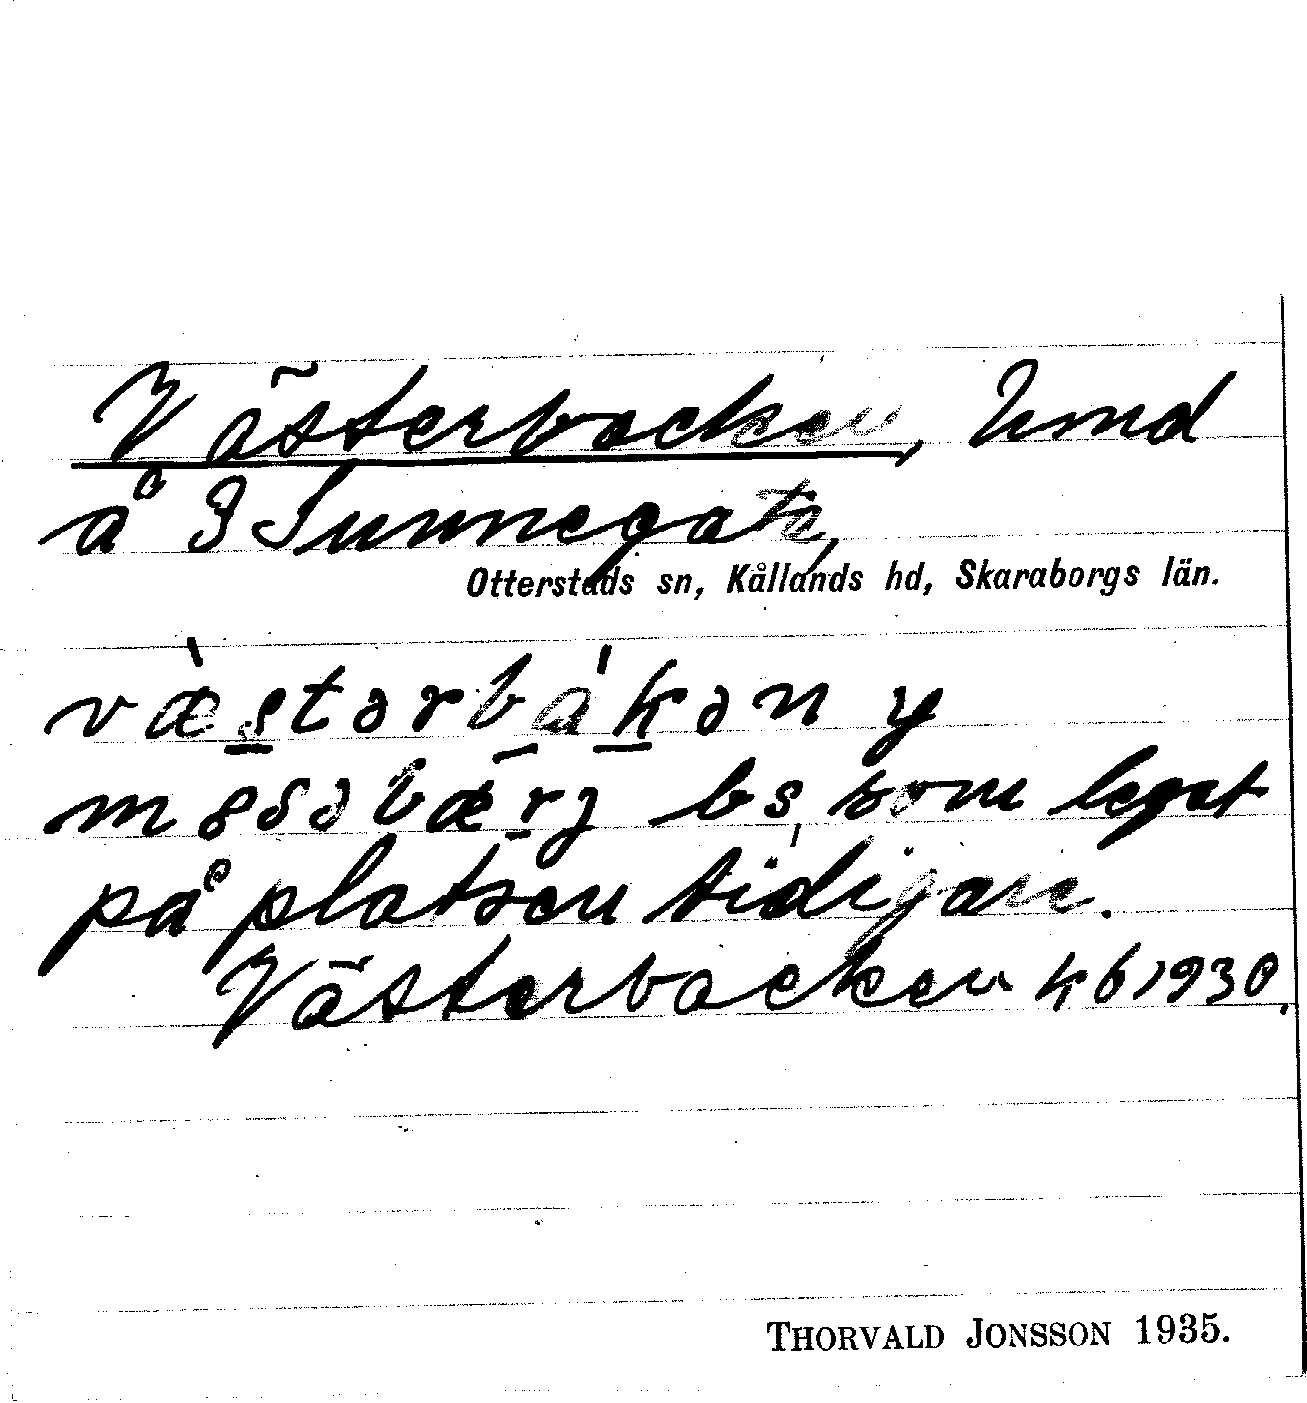 Västerbacken, hmd
å 3 Sunnegata,
Otterstads sn, Kållands hd, Skaraborgs län.
væ̀stərbákən y
bs, som legat
på platsen tidigare.
Västerbacken kb 1930.
THORVALD JONSSON 1935.